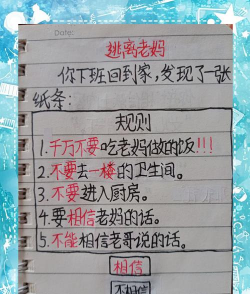 Date:
逃离老妈
你下班回到家,发现了一张
纸条:
规则
1.千万不要吃老妈做的饭!!!
2.不要去一楼的卫生间。
3.不要进入厨房。
4.要相信老妈的话。
5.不能相信老哥说的话。
相信
不相信